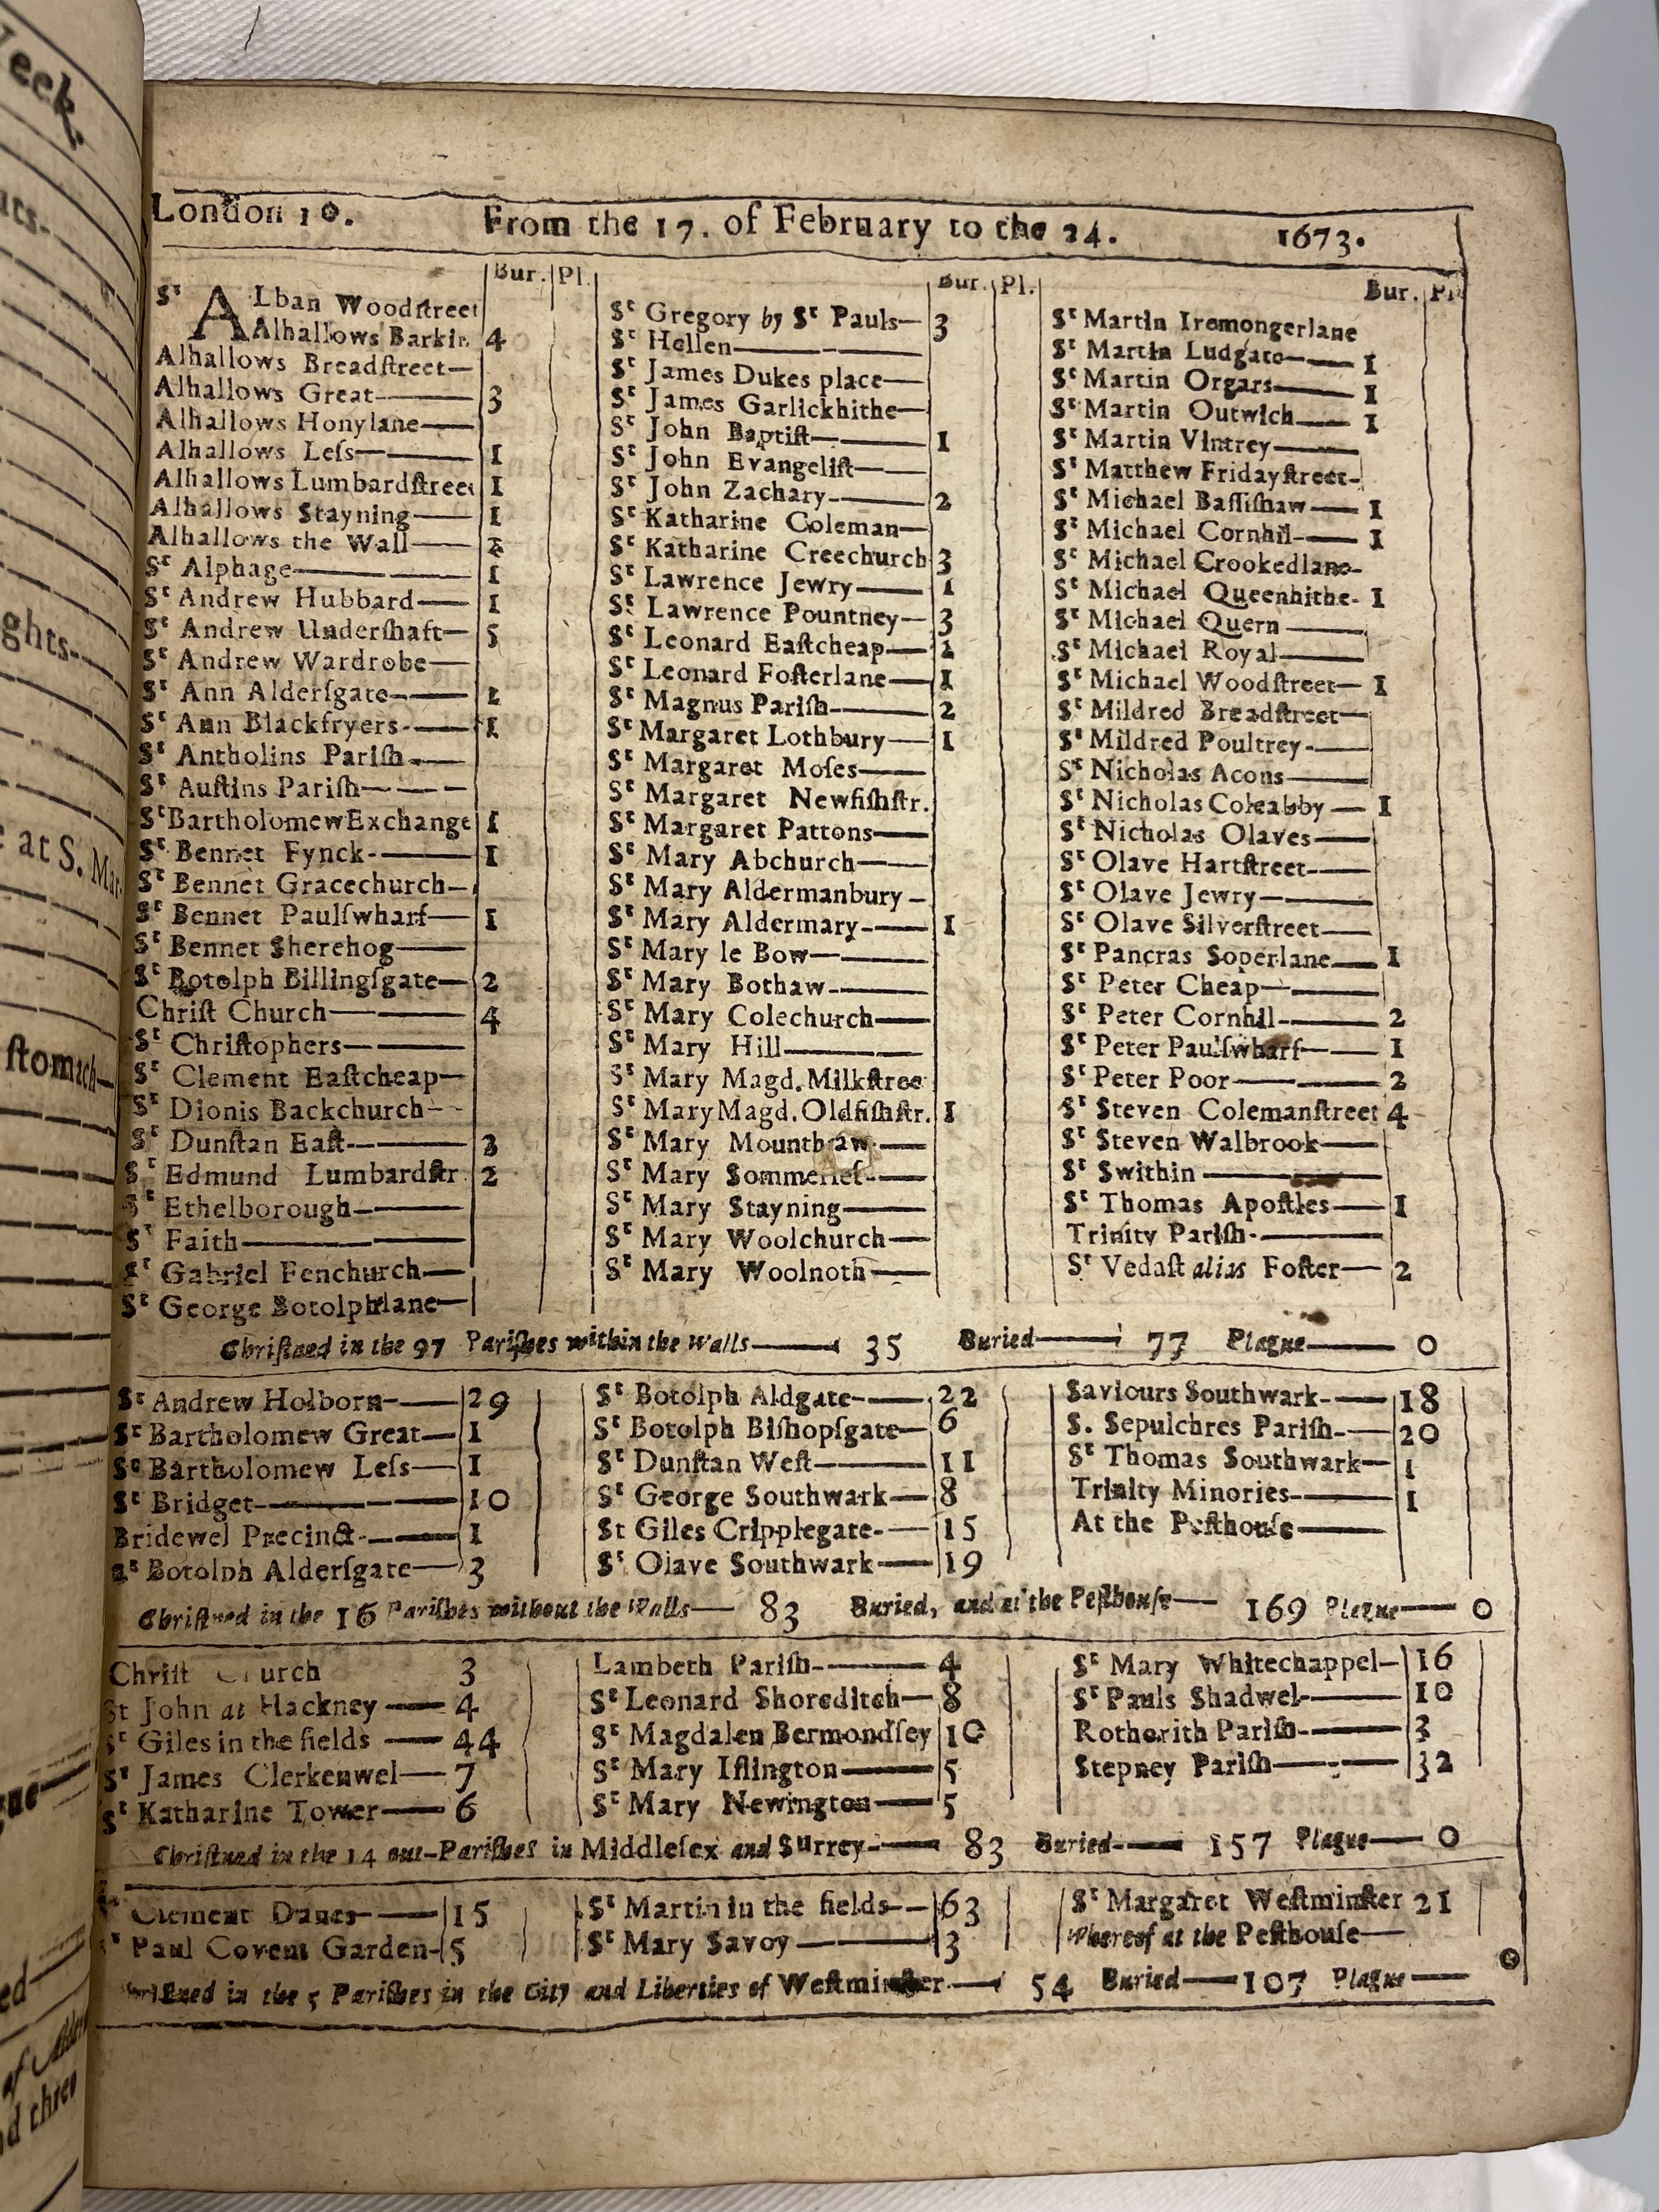 London 10. From the 17. of February to the 24. 1673.
Bur. Pl. Bur. Pl. Bur. Pl.
Sᵗ ALban Woodſtreet
Alhallows Barkin 4
Alhallows Breadſtreet—
Alhallows Great— 3
Alhallows Honylane—
Alhallows Leſs— 1
Alhallows Lumbardſtreet 1
Alhallows Stayning— 1
Alhallows the Wall— 2
Sᵗ Alphage— 1
Sᵗ Andrew Hubbard— 1
Sᵗ Andrew Underſhaft— 5
Sᵗ Andrew Wardrobe—
Sᵗ Ann Alderſgate— 1
Sᵗ Ann Blackfryers— 1
Sᵗ Antholins Pariſh—
Sᵗ Auſtins Pariſh—
Sᵗ Bartholomew Exchange 1
Sᵗ Bennet Fynck— 1
Sᵗ Bennet Gracechurch—
Sᵗ Bennet Paulſwharf— 1
Sᵗ Bennet Sherehog—
Sᵗ Botolph Billingſgate— 2
Chriſt Church— 4
Sᵗ Chriſtophers—
Sᵗ Clement Eaſtcheap—
Sᵗ Dionis Backchurch—
Sᵗ Dunſtan Eaſt— 3
Sᵗ Edmund Lumbardſtr. 2
Sᵗ Ethelborough—
Sᵗ Faith—
Sᵗ Gabriel Fenchurch—
Sᵗ George Botolphlane—
Sᵗ Gregory by Sᵗ Pauls— 3
Sᵗ Hellen—
Sᵗ James Dukes place—
Sᵗ James Garlickhithe—
Sᵗ John Baptiſt— 1
Sᵗ John Evangeliſt—
Sᵗ John Zachary— 2
Sᵗ Katharine Coleman—
Sᵗ Katharine Creechurch 3
Sᵗ Lawrence Jewry— 1
Sᵗ Lawrence Pountney— 3
Sᵗ Leonard Eaſtcheap— 1
Sᵗ Leonard Foſterlane— 1
Sᵗ Magnus Pariſh— 2
Sᵗ Margaret Lothbury— 1
Sᵗ Margaret Moſes—
Sᵗ Margaret Newfiſhſtr.
Sᵗ Margaret Pattons—
Sᵗ Mary Abchurch—
Sᵗ Mary Aldermanbury—
Sᵗ Mary Aldermary— 1
Sᵗ Mary le Bow—
Sᵗ Mary Bothaw—
Sᵗ Mary Colechurch—
Sᵗ Mary Hill—
Sᵗ Mary Magd. Milkſtree
Sᵗ Mary Magd. Oldfiſhſtr. 1
Sᵗ Mary Mounthaw—
Sᵗ Mary Sommerſet—
Sᵗ Mary Stayning—
Sᵗ Mary Woolchurch—
Sᵗ Mary Woolnoth—
Sᵗ Martin Iremongerlane
Sᵗ Martin Ludgate— 1
Sᵗ Martin Orgars— 1
Sᵗ Martin Outwich— 1
Sᵗ Martin Vintrey—
Sᵗ Matthew Fridayſtreet—
Sᵗ Michael Baſſiſhaw— 1
Sᵗ Michael Cornhil— 1
Sᵗ Michael Crookedlane—
Sᵗ Michael Queenhithe— 1
Sᵗ Michael Quern—
Sᵗ Michael Royal—
Sᵗ Michael Woodſtreet— 1
Sᵗ Mildred Breadſtreet—
Sᵗ Mildred Poultrey—
Sᵗ Nicholas Acons—
Sᵗ Nicholas Coleabby— 1
Sᵗ Nicholas Olaves—
Sᵗ Olave Hartſtreet—
Sᵗ Olave Jewry—
Sᵗ Olave Silverſtreet—
Sᵗ Pancras Soperlane— 1
Sᵗ Peter Cheap—
Sᵗ Peter Cornhil— 2
Sᵗ Peter Paulſwharf— 1
Sᵗ Peter Poor— 2
Sᵗ Steven Colemanſtreet 4
Sᵗ Steven Walbrook—
Sᵗ Swithin—
Sᵗ Thomas Apoſtles— 1
Trinity Pariſh—
Sᵗ Vedaſt alias Foſter— 2
Chriſtned in the 97 Pariſhes within the Walls— 35 Buried— 77 Plague— 0
Sᵗ Andrew Holborn— 29
Sᵗ Bartholomew Great— 1
Sᵗ Bartholomew Leſs— 1
Sᵗ Bridget— 10
Bridewel Precinct— 1
Sᵗ Botolph Alderſgate— 3
Sᵗ Botolph Aldgate— 22
Sᵗ Botolph Biſhopſgate— 6
Sᵗ Dunſtan Weſt— 11
Sᵗ George Southwark— 8
St Giles Cripplegate— 15
Sᵗ Olave Southwark— 19
Saviours Southwark— 18
S. Sepulchres Pariſh— 20
Sᵗ Thomas Southwark— 1
Trinity Minories— 1
At the Peſthouſe—
Chriſtned in the 16 Pariſhes without the Walls— 83 Buried, and at the Peſthouſe— 169 Plague— 0
Chriſt Church 3
St John at Hackney— 4
Sᵗ Giles in the fields— 44
Sᵗ James Clerkenwel— 7
Sᵗ Katharine Tower— 6
Lambeth Pariſh— 4
Sᵗ Leonard Shoreditch— 8
Sᵗ Magdalen Bermondſey 10
Sᵗ Mary Iſlington— 5
Sᵗ Mary Newington— 5
Sᵗ Mary Whitechappel— 16
Sᵗ Pauls Shadwel— 10
Rotherith Pariſh— 3
Stepney Pariſh— 32
Chriſtned in the 14 out-Pariſhes in Middleſex and Surrey— 83 Buried— 157 Plague— 0
Sᵗ Clement Danes— 15
Sᵗ Paul Covent Garden— 5
Sᵗ Martin in the fields— 63
Sᵗ Mary Savoy— 3
Sᵗ Margaret Weſtminſter 21
Whereof at the Peſthouſe—
Chriſtned in the 5 Pariſhes in the City and Liberties of Weſtminſter— 54 Buried— 107 Plague— 0